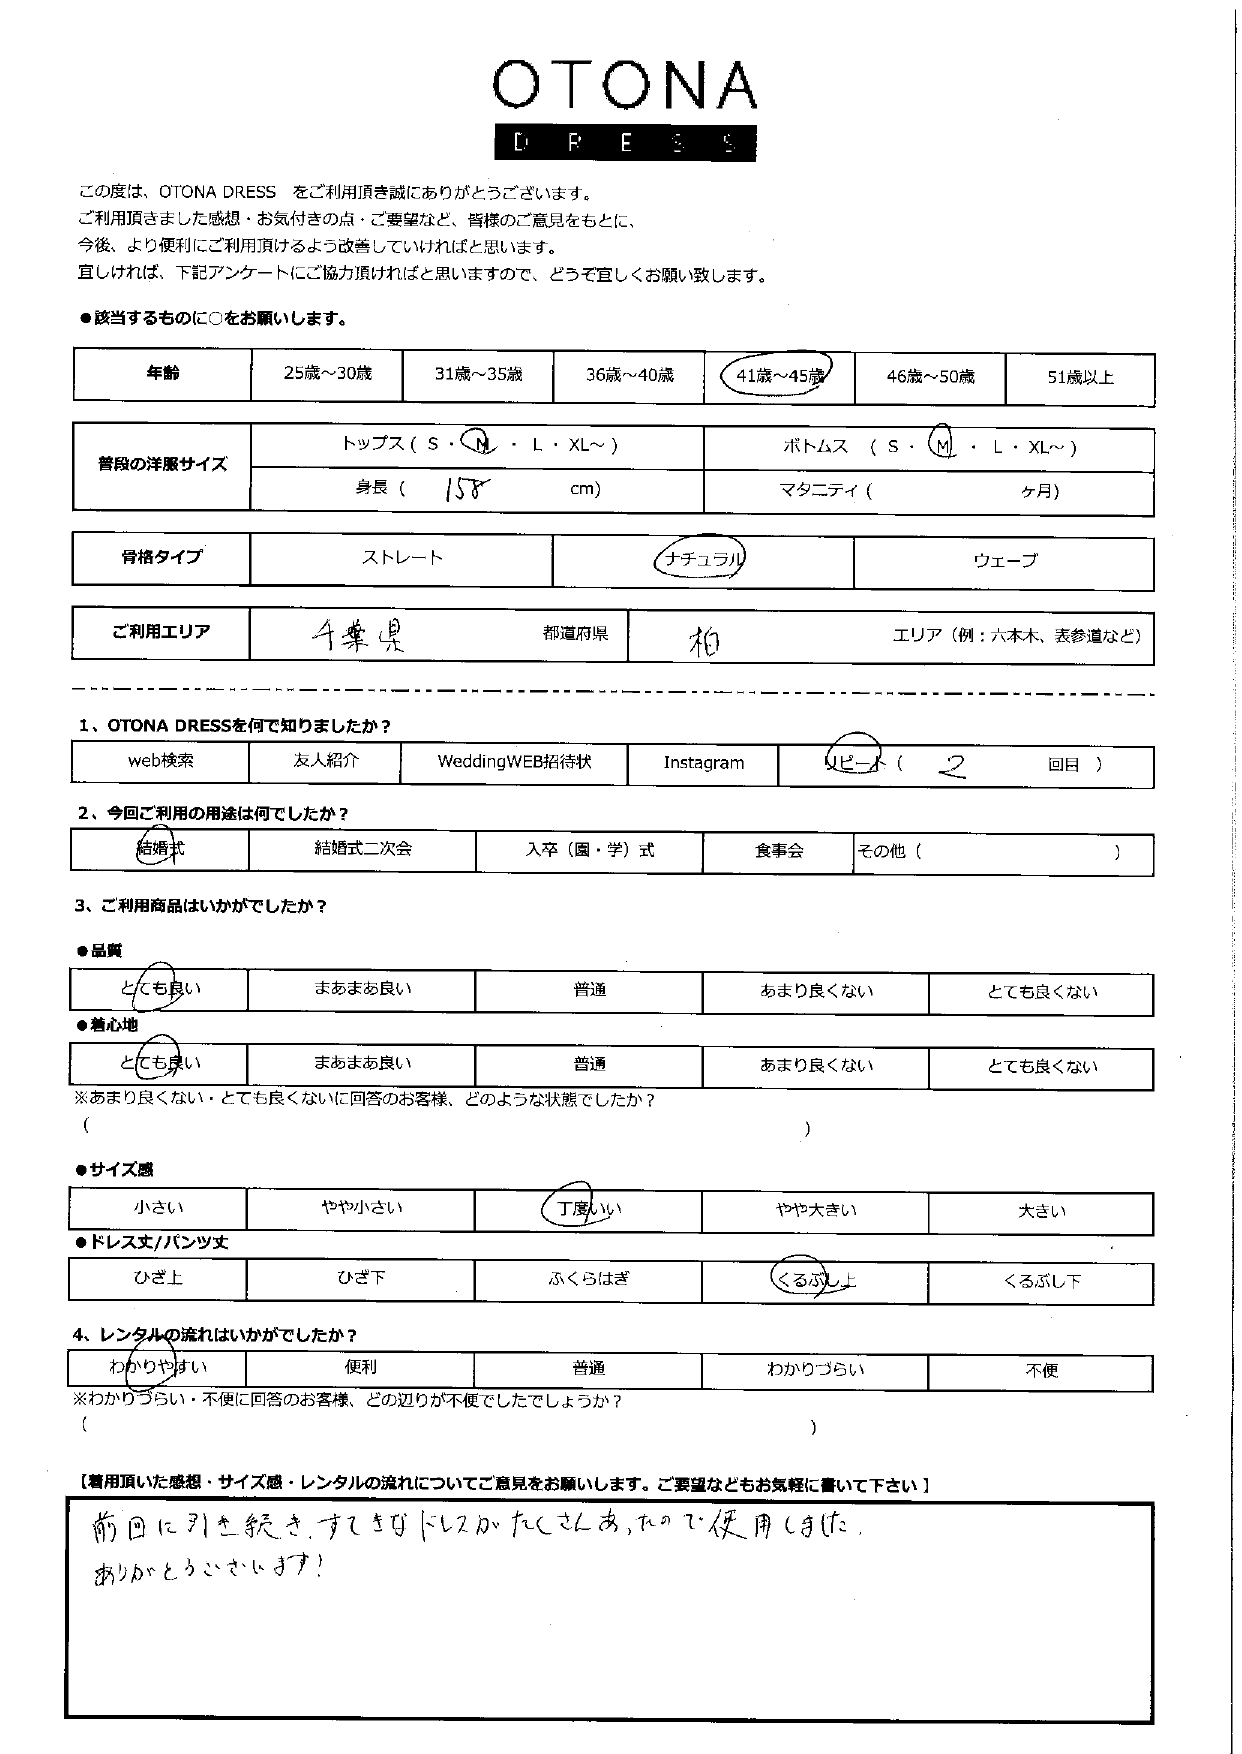 OTONA
DRESS
この度は、OTONA DRESS　をご利用頂き誠にありがとうございます。
ご利用頂きました感想・お気付きの点・ご要望など、皆様のご意見をもとに、
今後、より便利にご利用頂けるよう改善していければと思います。
宜しければ、下記アンケートにご協力頂ければと思いますので、どうぞ宜しくお願い致します。
●該当するものに○をお願いします。
年齢 25歳～30歳 31歳～35歳 36歳～40歳 41歳～45歳 46歳～50歳 51歳以上
普段の洋服サイズ トップス ( S ・ M ・ L ・ XL～ ) ボトムス ( S ・ M ・ L ・ XL～ )
身長 ( 158 cm) マタニティ ( ヶ月)
骨格タイプ ストレート ナチュラル ウェーブ
ご利用エリア 千葉県 都道府県 柏 エリア（例：六本木、表参道など）
1、OTONA DRESSを何で知りましたか？
web検索 友人紹介 WeddingWEB招待状 Instagram リピート ( 2 回目 )
2、今回ご利用の用途は何でしたか？
結婚式 結婚式二次会 入卒（園・学）式 食事会 その他 ( )
3、ご利用商品はいかがでしたか？
●品質
とても良い まあまあ良い 普通 あまり良くない とても良くない
●着心地
とても良い まあまあ良い 普通 あまり良くない とても良くない
※あまり良くない・とても良くないに回答のお客様、どのような状態でしたか？
( )
●サイズ感
小さい やや小さい 丁度いい やや大きい 大きい
●ドレス丈/パンツ丈
ひざ上 ひざ下 ふくらはぎ くるぶし上 くるぶし下
4、レンタルの流れはいかがでしたか？
わかりやすい 便利 普通 わかりづらい 不便
※わかりづらい・不便に回答のお客様、どの辺りが不便でしたでしょうか？
( )
【着用頂いた感想・サイズ感・レンタルの流れについてご意見をお願いします。ご要望などもお気軽に書いて下さい 】
前回に引き続き、すてきなドレスがたくさんあったので使用しました。
ありがとうございます！